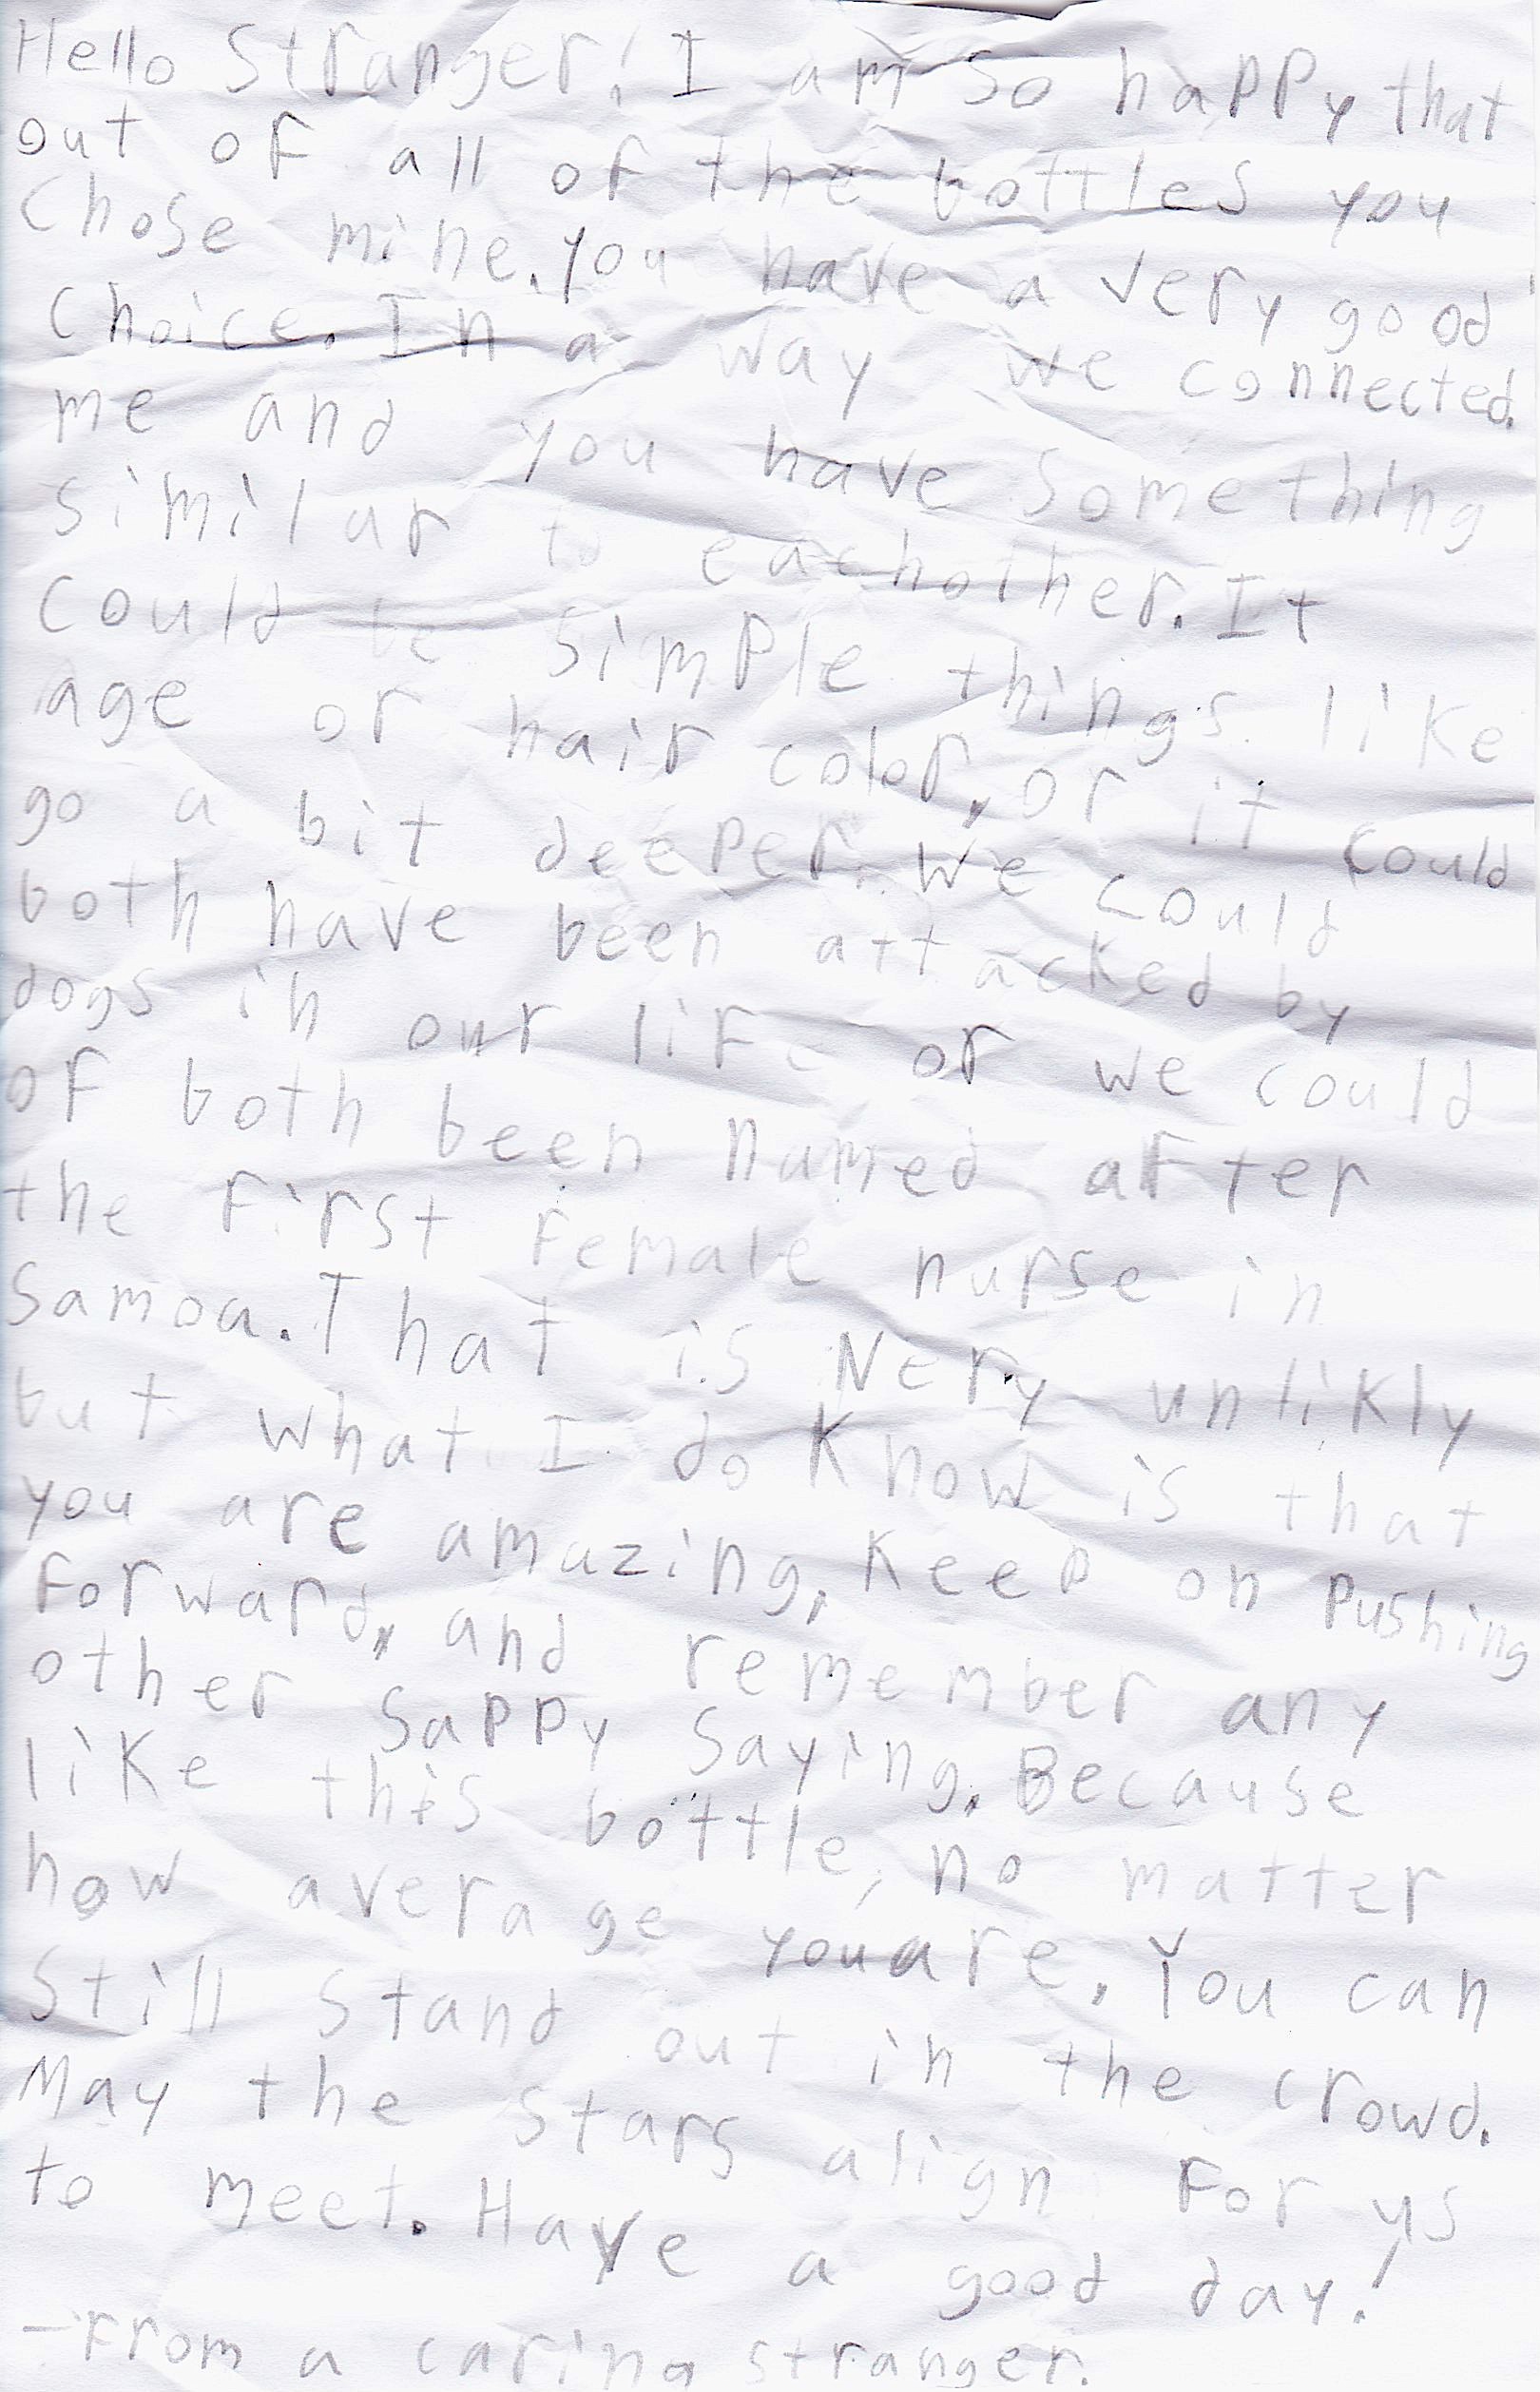 Hello Stranger! I am so happy that
out of all of the bottles you
chose mine. you have a very good
choice. In a way we connected.
me and you have something
similar to eachother. It
could be simple things like
age or hair color, or it could
go a bit deeper. We could
both have been attacked by
dogs in our life or we could
of both been named after
the first female nurse in
Samoa. That is very unlikly
but what I do know is that
you are amazing, keep on pushing
forward, and remember any
other sappy saying. Because
like this bottle, no matter
how average you are. You can
still stand out in the crowd.
May the stars align for us
to meet. Have a good day!
- From a caring stranger.